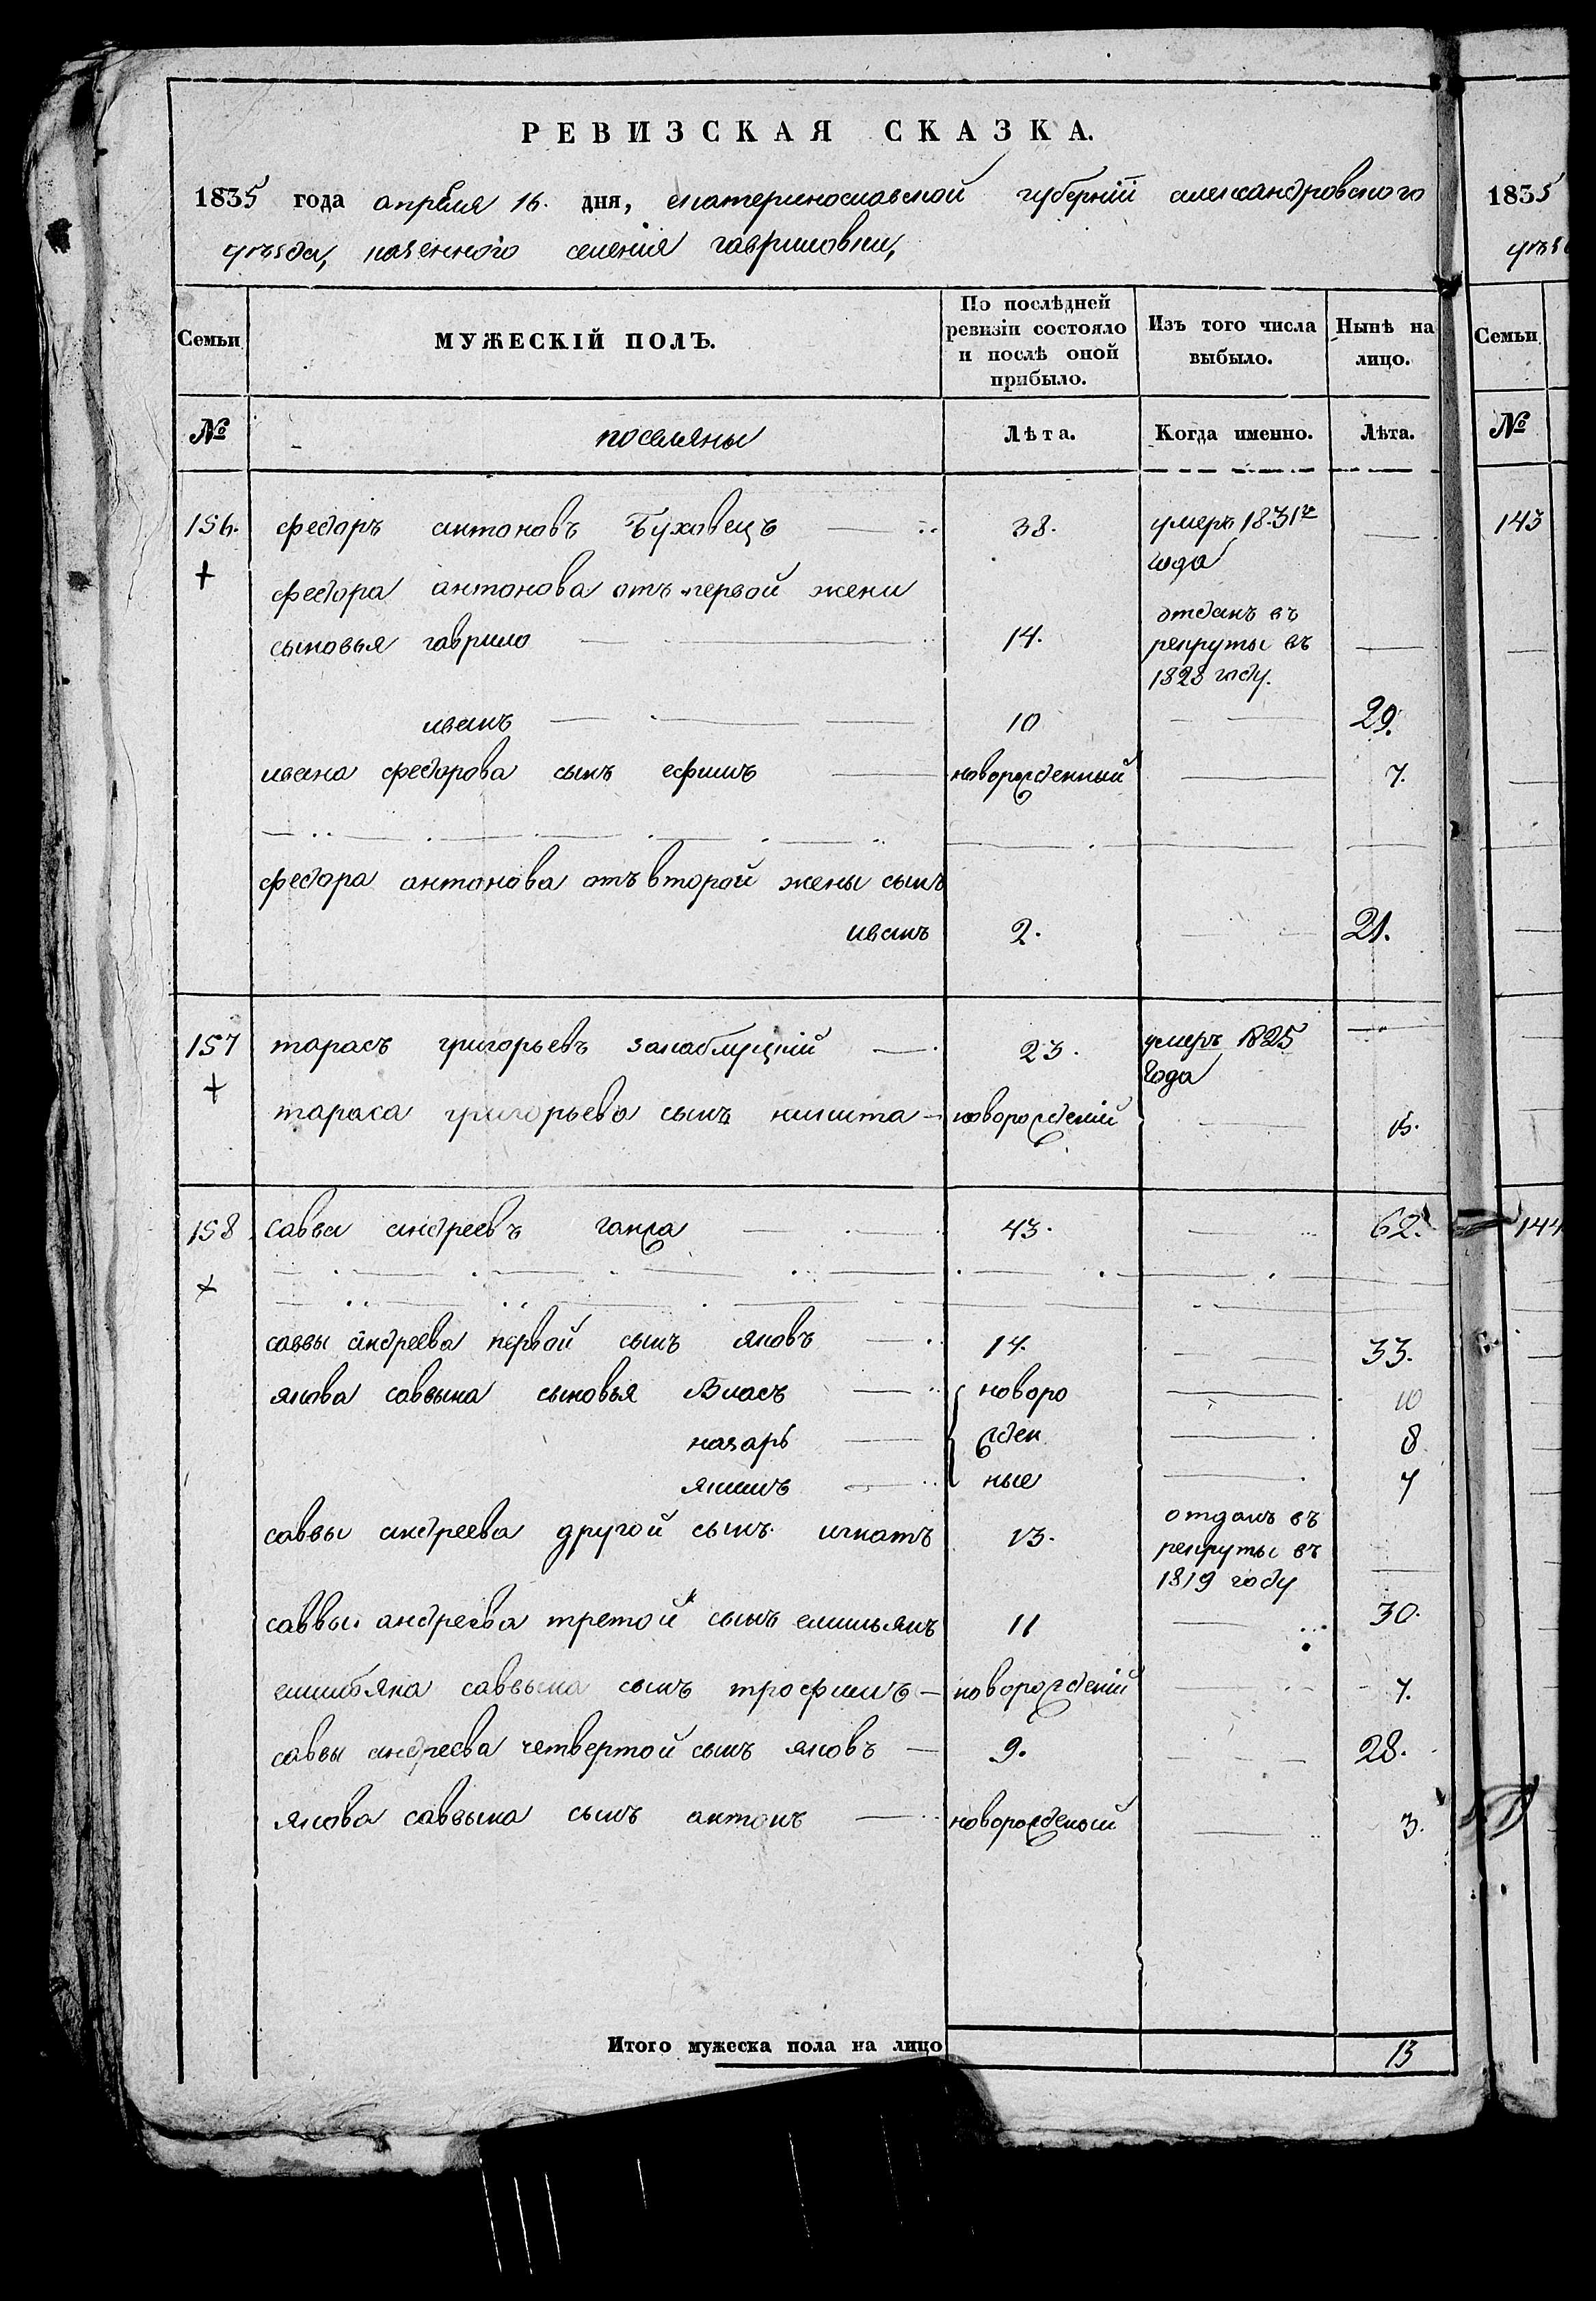 РЕВИЗСКАЯ СКАЗКА.
1835 года апреля 16. дня, екатеринославской губернїй александровского
уѣзда, казенного селенїя гавриловки,
Семьи
МУЖЕСКІЙ ПОЛЪ.
По послѣдней ревизіи состояло и послѣ оной прибыло.
Изъ того числа выбыло.
Нынѣ на лицо.
№ поселяны Лѣта. Когда именно. Лѣта.
156. федоръ антоновъ Буховецъ 38. умеръ 1831го
года
федора антонова отъ первой жени
отданъ въ
сыновья гаврило 14. рекруты въ
1828 году.
иванъ 10 29.
ивана федорова сынъ ефимъ новорожденный 7.
федора антонова отъ второй жены сынъ
иванъ 2. 21.
157 тарасъ григорьевъ заблуцкїй 23. умеръ 1825
года
тараса григорьева сынъ никита новорожденїй 15.
158 савва андреевъ ганжа 43. 62.
саввы андреева первой сынъ яковъ 14. 33.
якова саввына сыновья Власъ новоро 10
назаръ жден 8.
якимъ ные 7
саввы андреева другой сынъ игнатъ 13. отданъ въ
рекруты въ
1819 году
саввы андреева третой сынъ емильянъ 11 30.
емильяна саввына сынъ трофимъ новорожденїй 7.
саввы андреева четвертой сынъ яковъ 9. 28.
якова саввына сынъ антонъ новорожденой 3.
Итого мужеска пола на лицо 13
1835
уѣз
Семьи
№
143
144